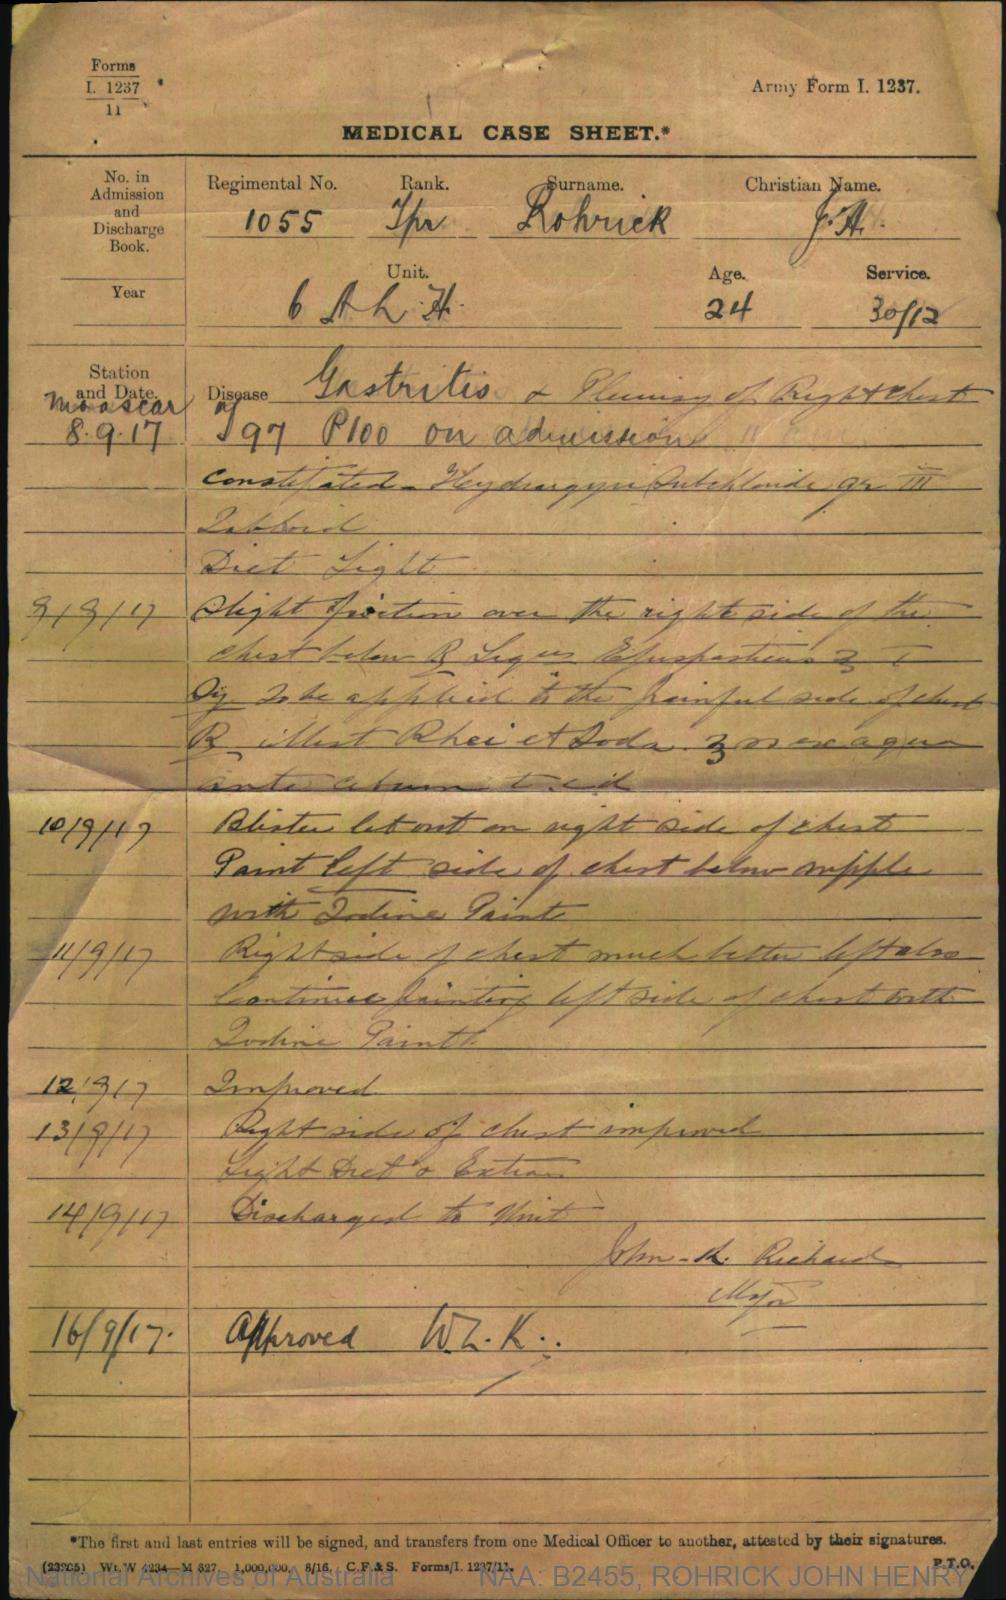 Forms
I. 1237
11
Army Form I. 1237.
MEDICAL CASE SHEET.*
No. in
Admission
and
Discharge
Book.
Year
Regimental No. Rank. Surname. Christian Name.
1055 Tpr Rohrick J. H.
Unit. Age. Service.
6 A L H. 24 30/12
Station
and Date.
Moascar
8.9.17
Disease Gastritis & Pleurisy of Right chest
97 P100 on admission
Constipated - Hydrargyri Subchloride gr III
Tabloid
Diet Light
9/9/17 Slight friction over the right side of the
chest below ℞ Liquor Epispasticus ʒ T
To be applied to the painful side of chest
℞ Mist Rhei et Soda ʒ ex aqua
ante cibum t.i.d
10/9/17 Blister let out on right side of chest
Paint left side of chest below nipple
with Iodine Paint
11/9/17 Right side of chest much better left also
Continue painting left side of chest with
Iodine Paint
12/9/17 Improved
13/9/17 Right side of chest improved
Light Diet & Extras
14/9/17 Discharged to Unit
John H. Richards
Major
16/9/17. Approved W.L.K.
*The first and last entries will be signed, and transfers from one Medical Officer to another, attested by their signatures.
(23265) Wt. W 4234—M 627. 1,000,000. 8/16. C.F.&S. Forms/I. 1237/11. P.T.O.
National Archives of Australia NAA: B2455, ROHRICK JOHN HENRY